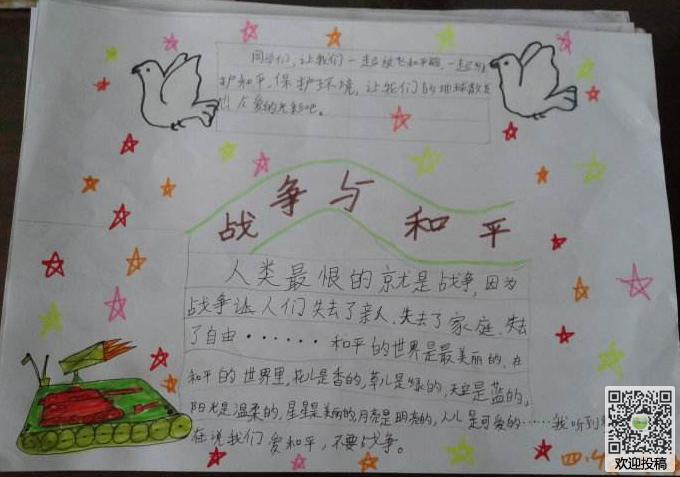 同学们，让我们一起放飞和平鸽，一起
护和平、保护环境，让我们的地球散
友爱的光彩吧。
战争与和平
人类最恨的就是战争，因为
战争让人们失去了亲人、失去了家庭、失去
了自由······和平的世界是最美丽的，在
和平的世界里，花儿是香的，草儿是绿的，天空是蓝的，
阳光是温柔的，星星是美丽的，月亮是明亮的，人儿是可爱的······我听到
在说我们爱和平，不要战争。
欢迎投稿